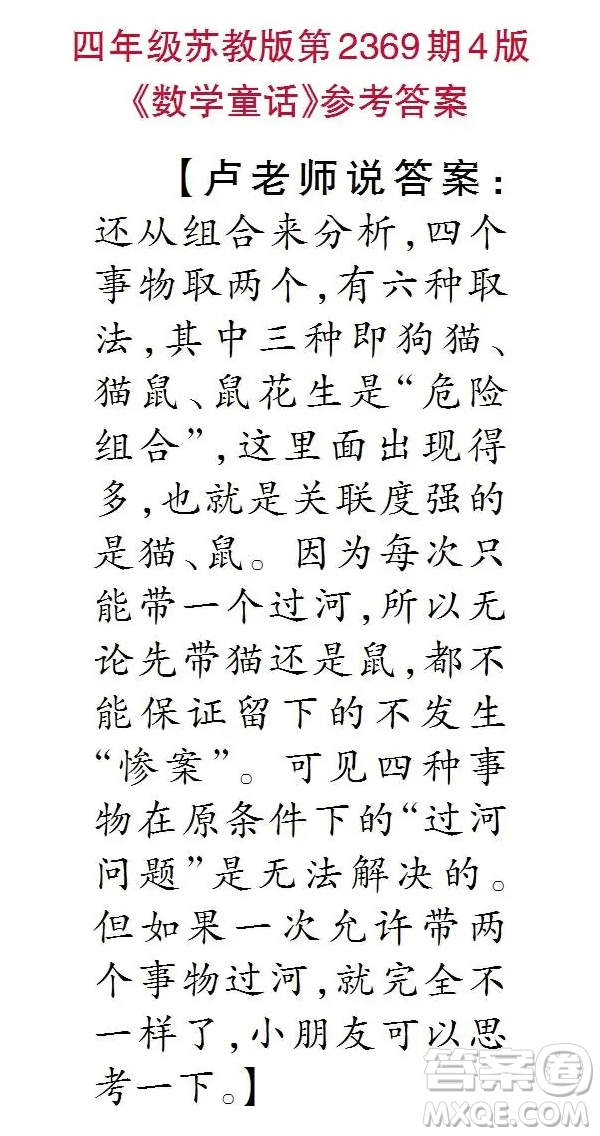 四年级苏教版第2369期4版
《数学童话》参考答案
【卢老师说答案:
还从组合来分析,四个
事物取两个,有六种取
法,其中三种即狗猫、
猫鼠、鼠花生是“危险
组合”,这里面出现得
多,也就是关联度强的
是猫、鼠。因为每次只
能带一个过河,所以无
论先带猫还是鼠,都不
能保证留下的不发生
“惨案”。可见四种事
物在原条件下的“过河
问题”是无法解决的。
但如果一次允许带两
个事物过河,就完全不
一样了,小朋友可以思
考一下。】
答案卷
MXQE.COM